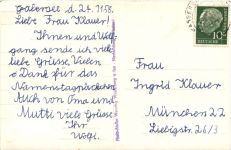 Gaberset d. 21.11.58.
Liebe Frau Klauer!
Ihnen und Wolf-
gang sende ich viele
liebe Grüsse. Vielen
Dank für das
Namenstagspäckchen
Auch von Oma und
Mutti viele Grüsse
Ihr
Wolfi.
10
DEUTSCHE
Frau
Ingrid Klauer
München 22
Liebigstr. 26/3